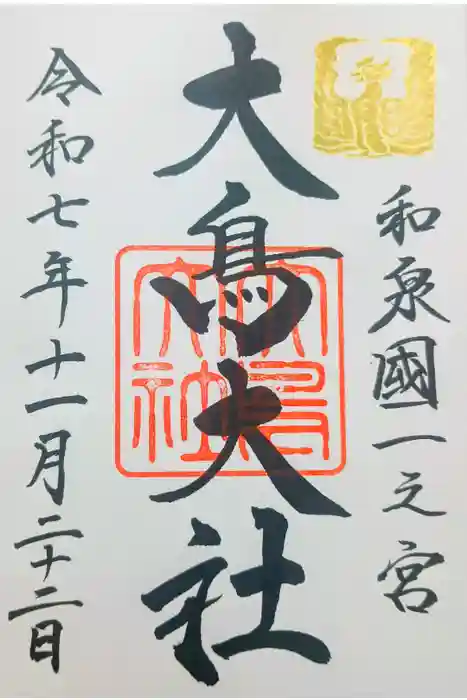 和泉國一之宮
大鳥大社
大鳥
大社
令和七年十一月二十二日